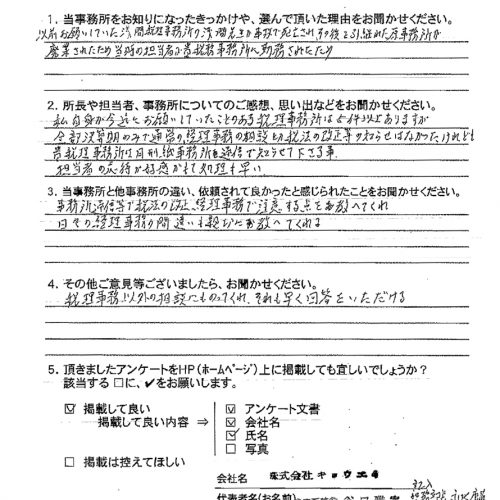 1. 当事務所をお知りになったきっかけや、選んで頂いた理由をお聞かせください。
以前お願いしていた浅間税理事務所の浅間先生が事故で死亡され、その後を引継れた
廃業されたため当時の担当者が貴税務事務所へ勤務されたため
2. 所長や担当者、事務所についてのご感想、思い出などをお聞かせください。
私自身が今迄にお願いしていたことのある税理事務所は5件以上ありますが
会計決算期のみで通常の経理事務の相談とか税法の改正等の知らせはなかったけれども
貴税理事務所は月刊紙事務所通信で知らせて下さる事、
担当者の応待が好感がもて処理も早い
3. 当事務所と他事務所の違い、依頼されて良かったと感じられたことをお聞かせください。
事務所通信等で税法の改正、経理事務で注意する点を教へてくれ
日々の経理事務の間違いも親切に教へてくれる
4. その他ご意見等ございましたら、お聞かせください。
税理事務以外の相談にものってくれ、それも早く回答をいただける
5. 頂きましたアンケートをHP(ホームページ)上に掲載しても宜しいでしょうか?
該当する □に、✔をお願いします。
☑ 掲載して良い
掲載して良い内容 ⇒
☑ アンケート文書
☑ 会社名
☑ 氏名
□ 写真
□ 掲載は控えてほしい
会社名 株式会社 キョウエイ
代表者名(お名前)